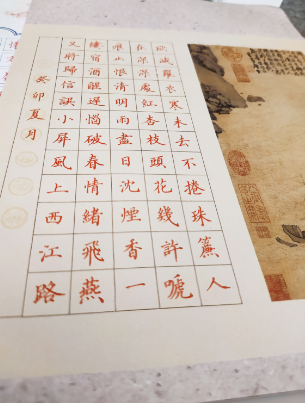 欲減羅衣寒未去不捲珠簾人
在深深處紅杏枝頭花幾許嗁
痕止恨清明雨盡日沈煙香一
縷宿酒醒遲惱破春情緒飛燕
又將歸信誤小屏風上西江路
癸卯夏月